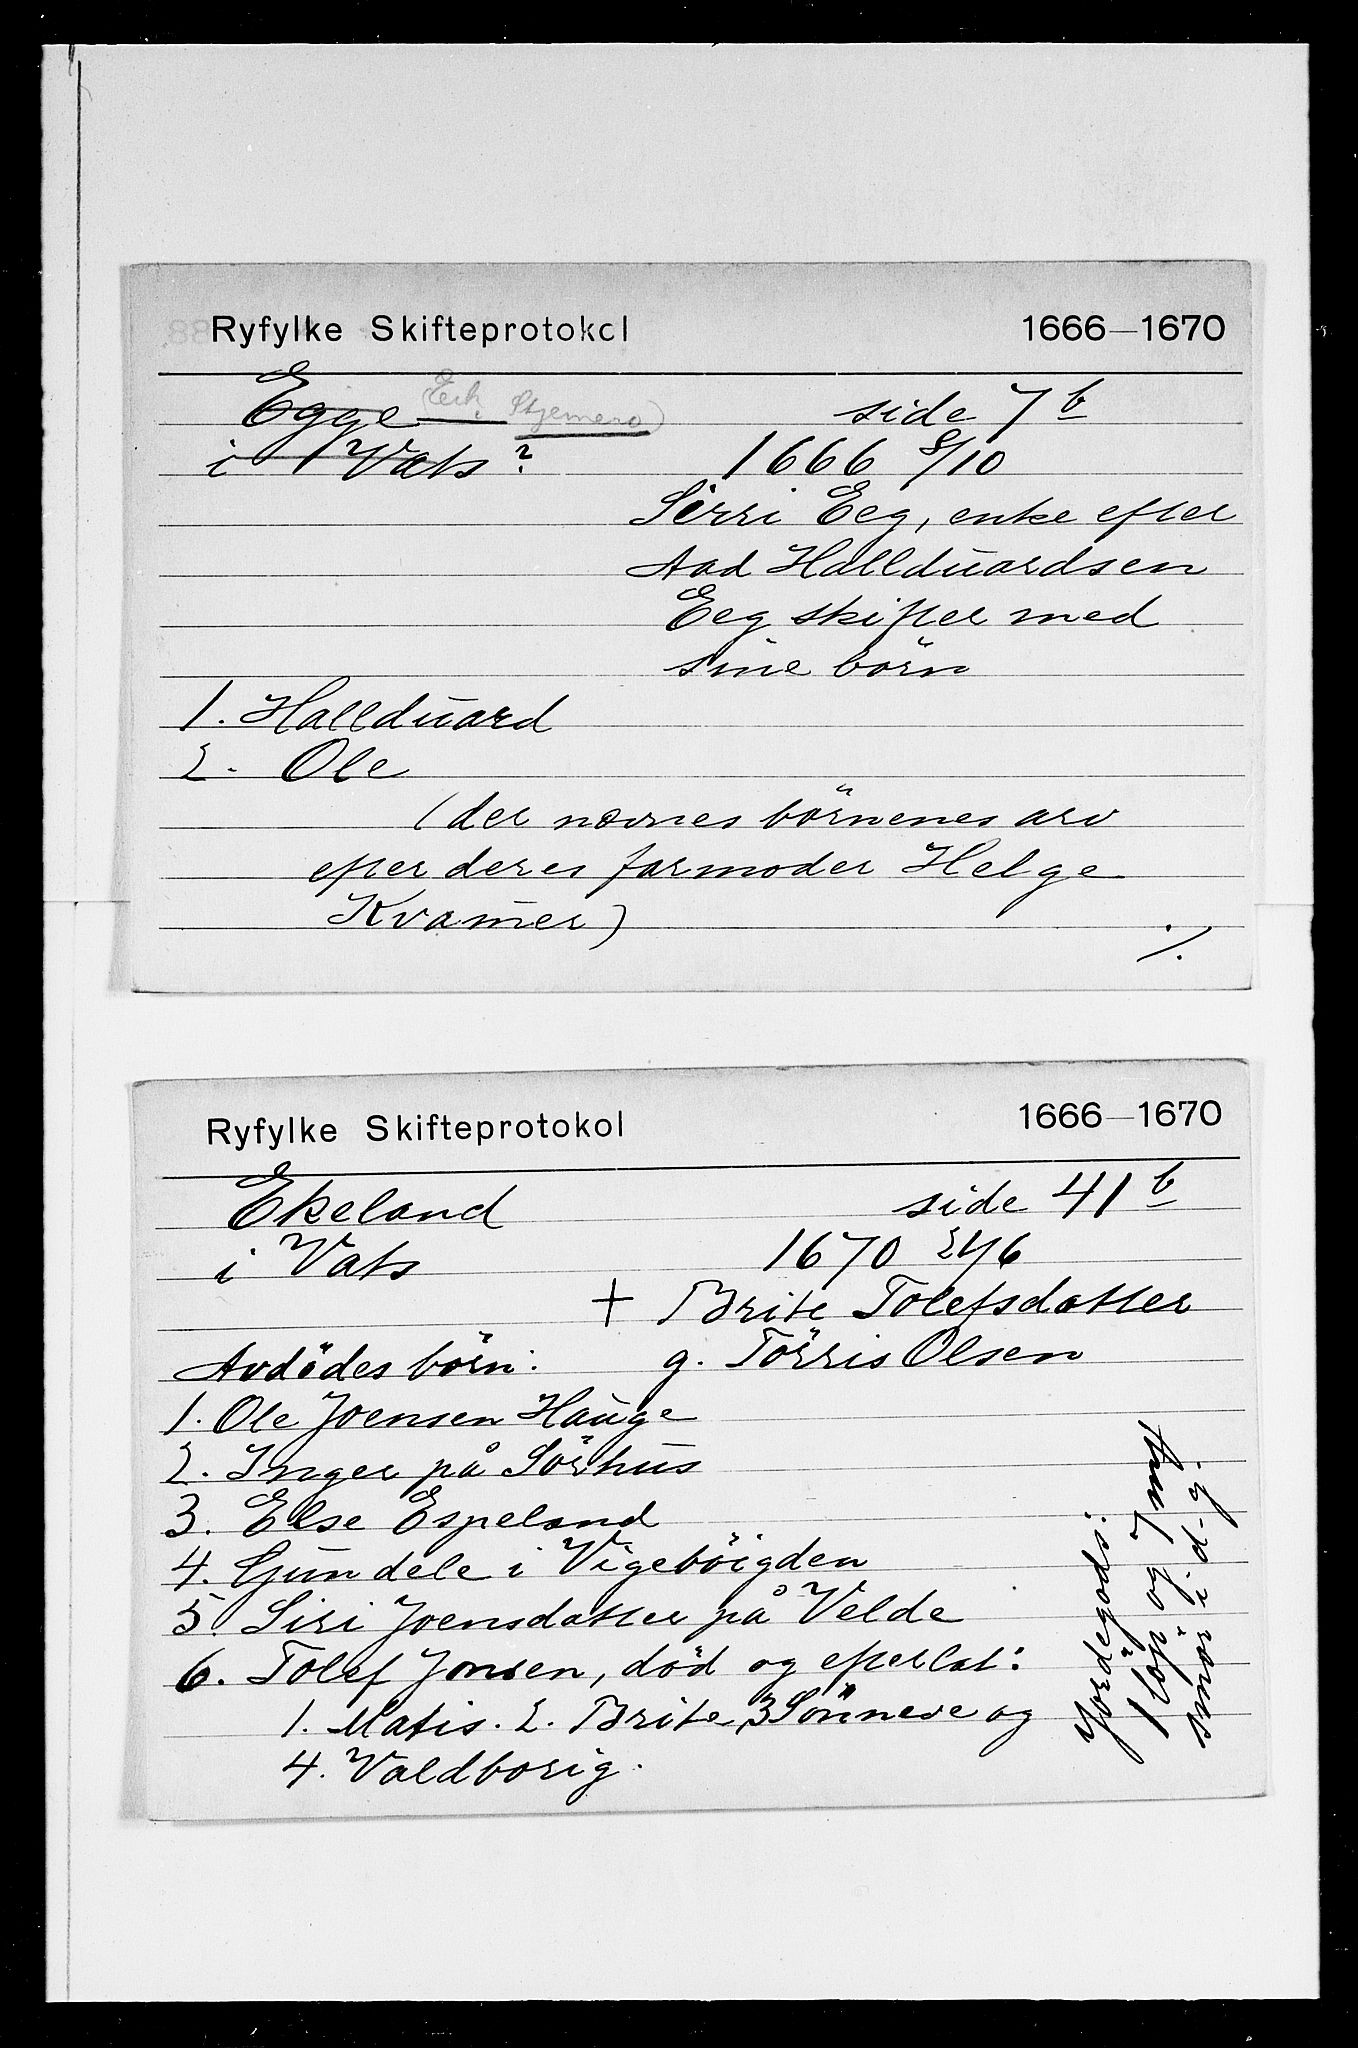 Ryfylke Skifteprotokol 1666—1670
Egge side 7 b
i Vats? 1666 8/10
Sirri Eeg, enke efter
Aad Hallduardsen
Eeg skifter med
sine börn
1. Hallduard
2. Ole
(der nævnes börnenes arv
efter deres farmoder Helge
Kvamer)
./.
Ryfylke Skifteprotokol 1666—1670
Ekeland side 41 b
i Vats 1670 24/6
+ Brite Tolefsdatter
Avdödes börn: g. Törris Olsen
1. Ole Joensen Hauge
2. Inger på Sörhus
3. Else Espeland
4. Gundele i Vigeböigden
5. Siri Joensdatter på Velde
6. Tolef Jonsen, död og efterlat:
1. Matis. 2. Brite, 3 Sönneve og
4. Valdborig.
Jordegods:
1 löp og 7 mrk
smör i d-g.